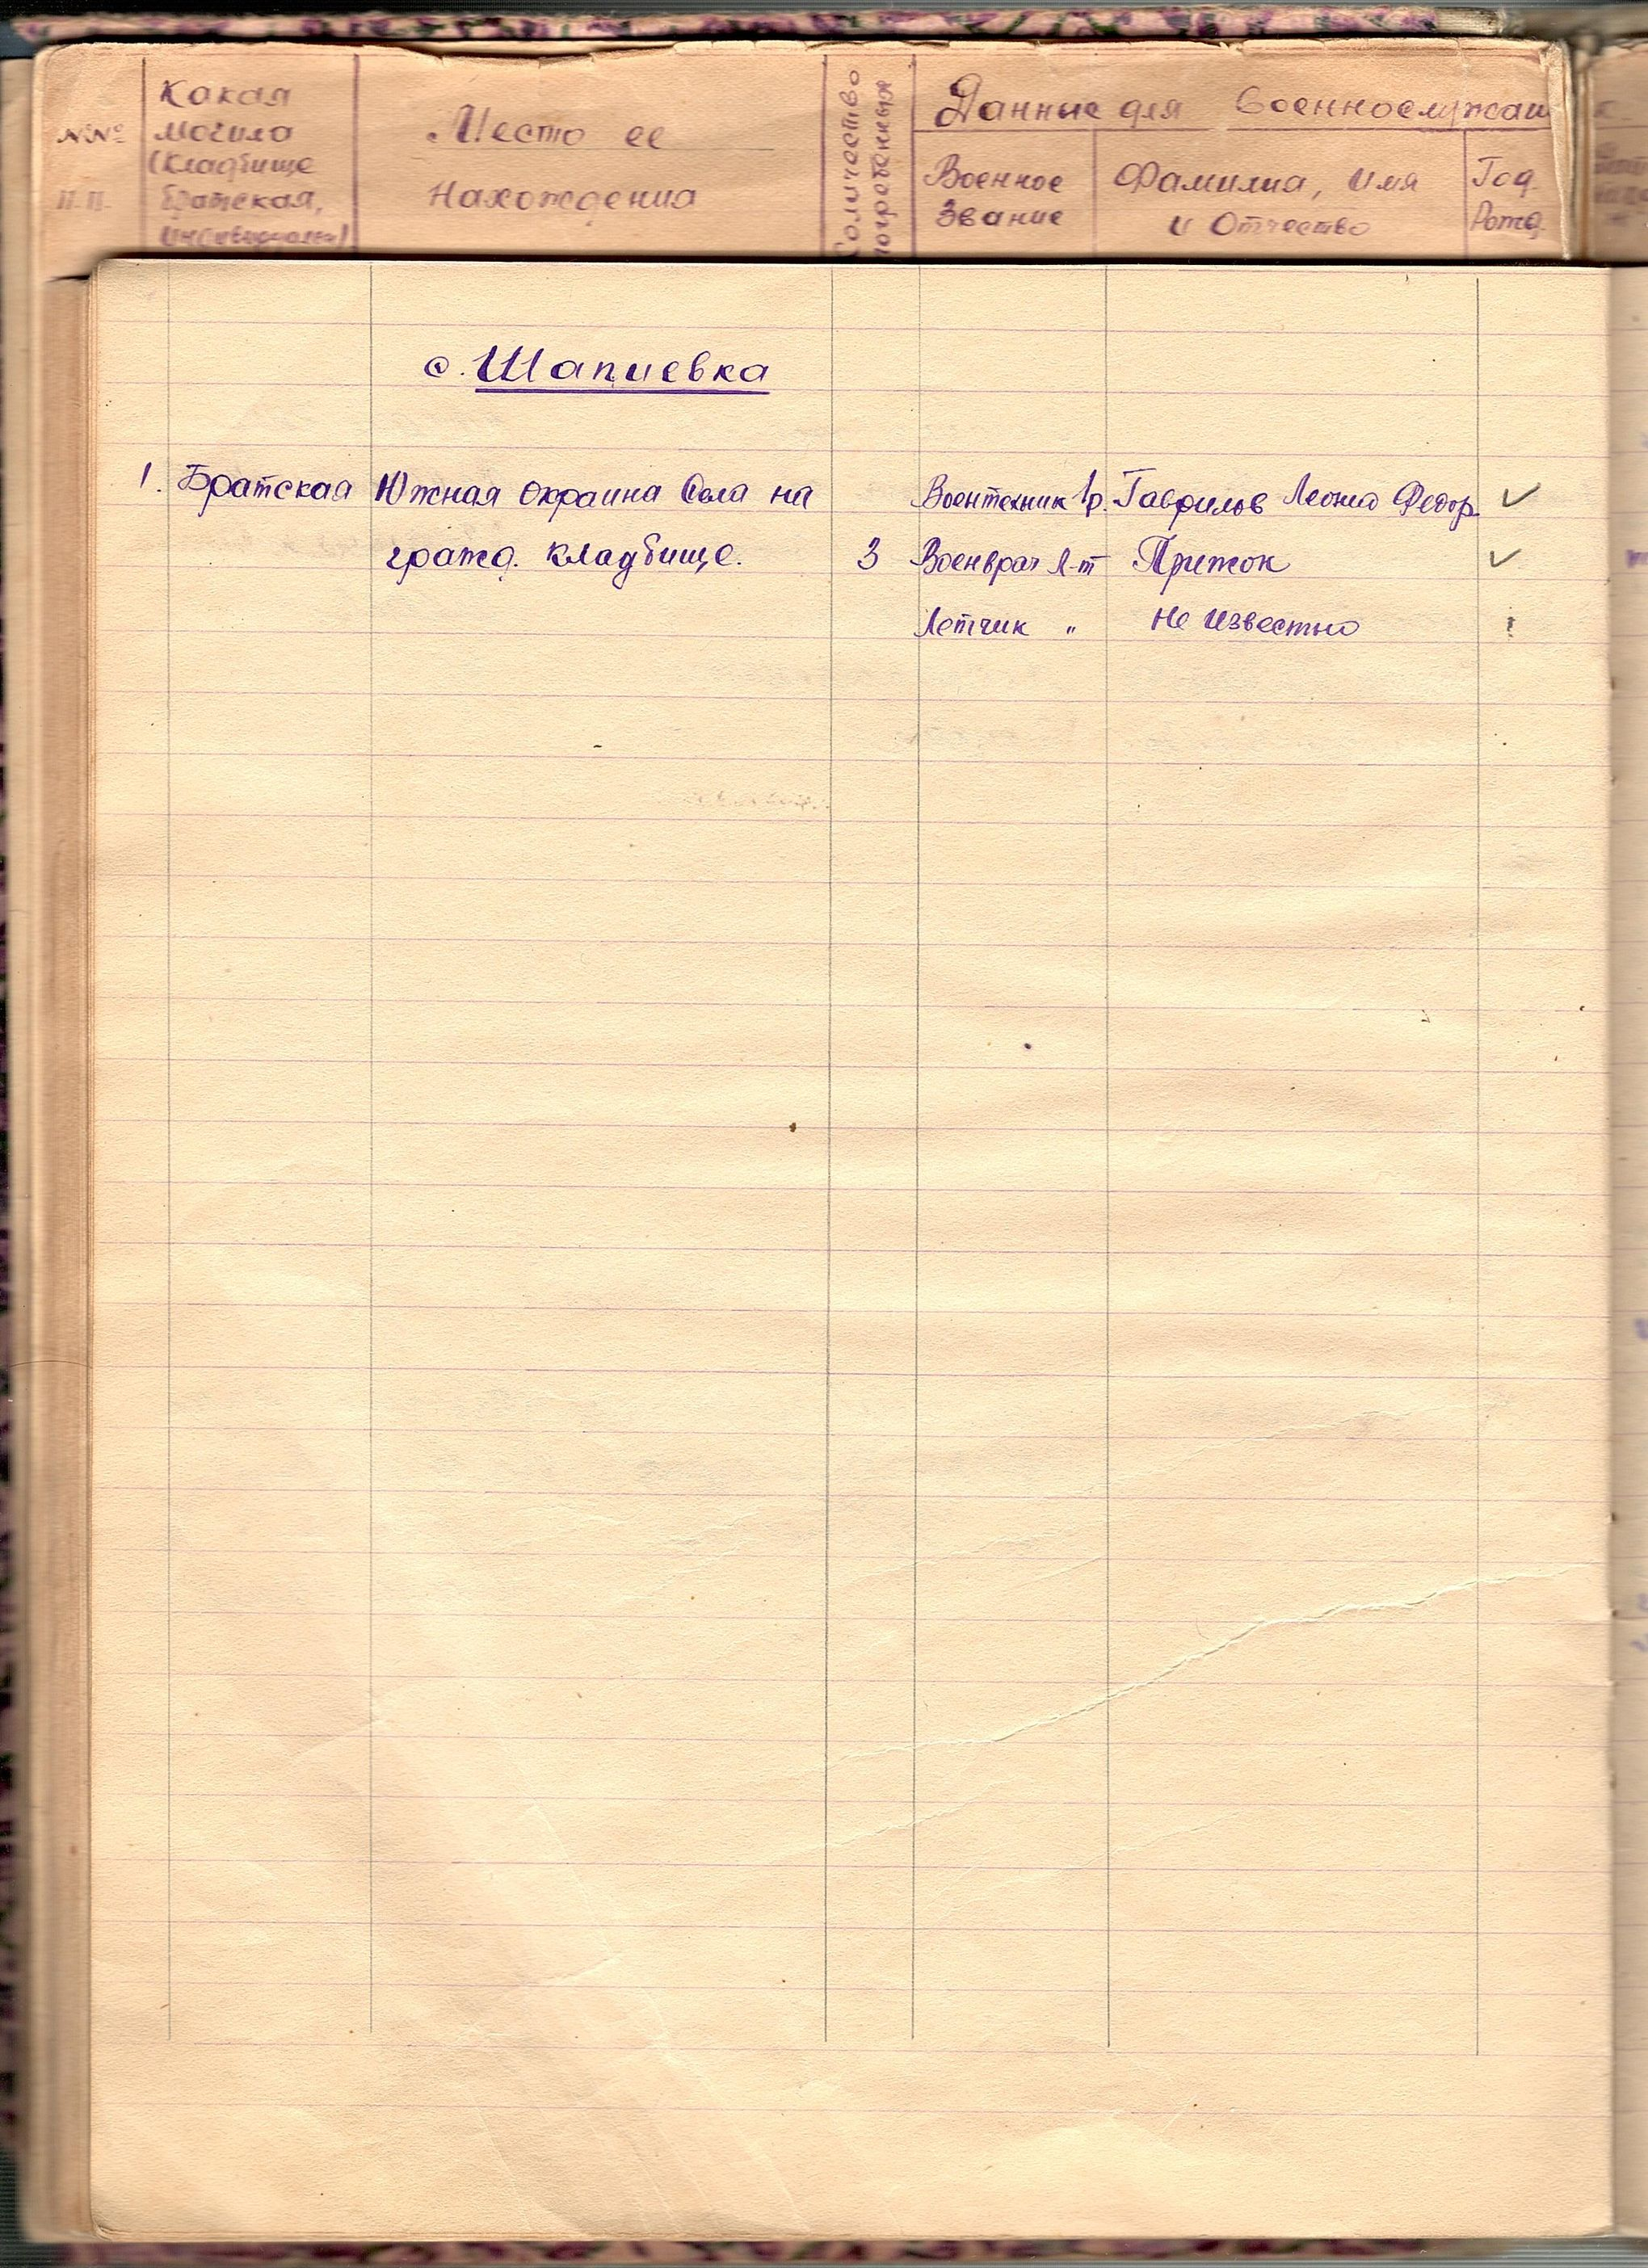 №№ п.п.
Какая могила (кладбище братская, индивидуальн)
Место ее нахождения
Количество погребенных
Данные для военнослужащ
Военное звание
Фамилия, имя и отчество
Год рожд.
с. Шапиевка
1. Братская Южная окраина села на Воентехник 1р. Гаврилов Леонид Федор.
гражд. кладбище. 3 Военврач л-т Приток
Летчик " Не известно